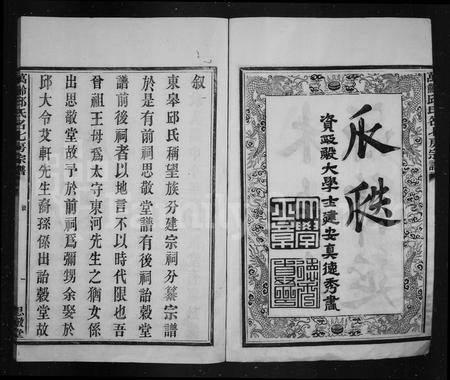 瓜瓞
資政殿大學士建安真德秀書
叙
東皋邱氏稱望族分建宗祠分纂宗譜
於是有前祠思敬堂譜有後祠詒穀堂
譜前後祠者以地言不以時代限也吾
曾祖王母爲太守東河先生之猶女係
出思敬堂故予於前祠爲彌甥余娶於
邱大令艾軒先生裔孫係出詒穀堂故
邱氏 七房宗譜
叙
一
思敬堂